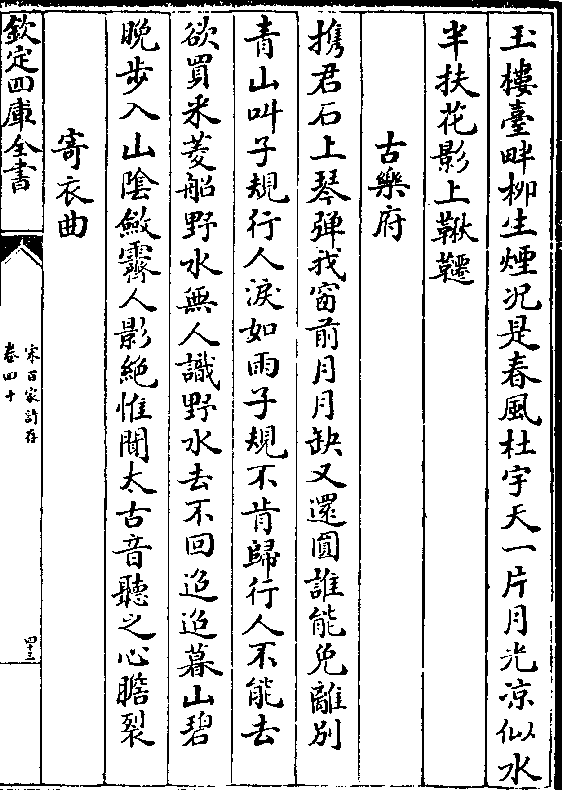 玉樓臺畔柳生煙况是春風杜宇天一片月光凉似水
半扶花影上鞦韆
古樂府
携君石上琴彈我窗前月月缺又還圓誰能免離别
青山叫子規行人淚如雨子規不肯歸行人不能去
欲買采菱船野水無人識野水去不回迢迢暮山碧
晚步入山陰斂霽人影絶惟聞太古音聽之心膽裂
寄衣曲
欽定四庫全書
宋百家詩存
卷四十
四十三